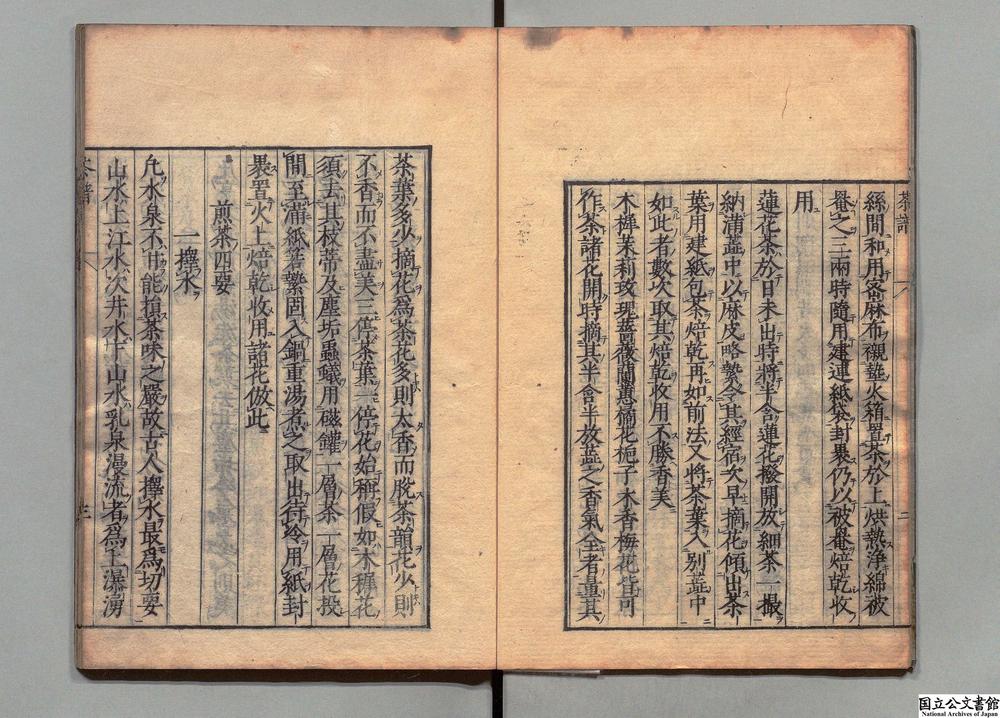 茶譜
二
絲間和用密麻布襯籬火箱置茶於上烘熱淨綿被
罨之三兩時隨用建連紙袋封裹仍以被罨焙乾收
用
蓮花茶於日未出時將半含蓮花撥開放細茶一撮
納滿蕋中以麻皮略縶令其經宿次早摘花傾出茶
葉用建紙包茶焙乾再如前法又將茶葉入別蕋中
如此者數次取其焙乾收用不勝香美
木樨茉莉玫瑰薔薇蘭蕙橘花梔子木香梅花皆可
作茶諸花開時摘其半含半放蕋之香氣全者量其
茶葉多少摘花爲茶花多則太香而脫茶韻花少則
不香而不盡美三停茶葉一停花始稱假如木樨花
須去其枝蒂及塵垢蟲蟻用磁罐一層茶一層花投
間至滿紙箬縶固入鍋重湯煮之取出待冷用紙封
裹置火上焙乾收用諸花倣此
煎茶四要
一擇水
凡水泉不甘能損茶味之嚴故古人擇水最爲切要
山水上江水次井水下山水乳泉漫流者爲上瀑湧
茶譜
国立公文書館
National Archives of Japan